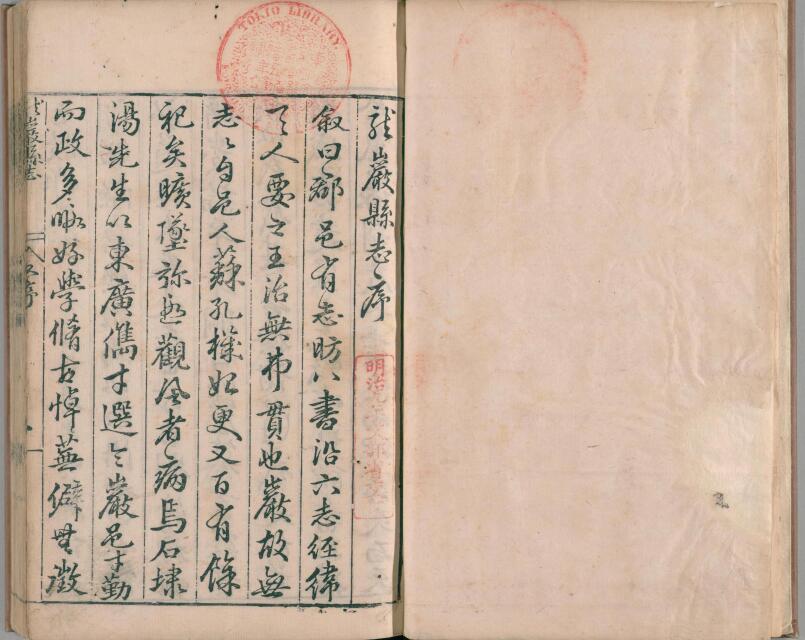 龍巖縣志序
叙曰郡邑有志昉八書沿六志經緯
天人要之王治無弗貫也巖故無
志志自邑人蘇孔機始更又百有餘
祀矣曠墜弥 觀風者病焉石埭
湯先生以東廣儁才選令巖邑才勤
而政多暇好學脩古悼蕪僻無徵
龍巖縣志
序
TOKIO LIBRARY
明治